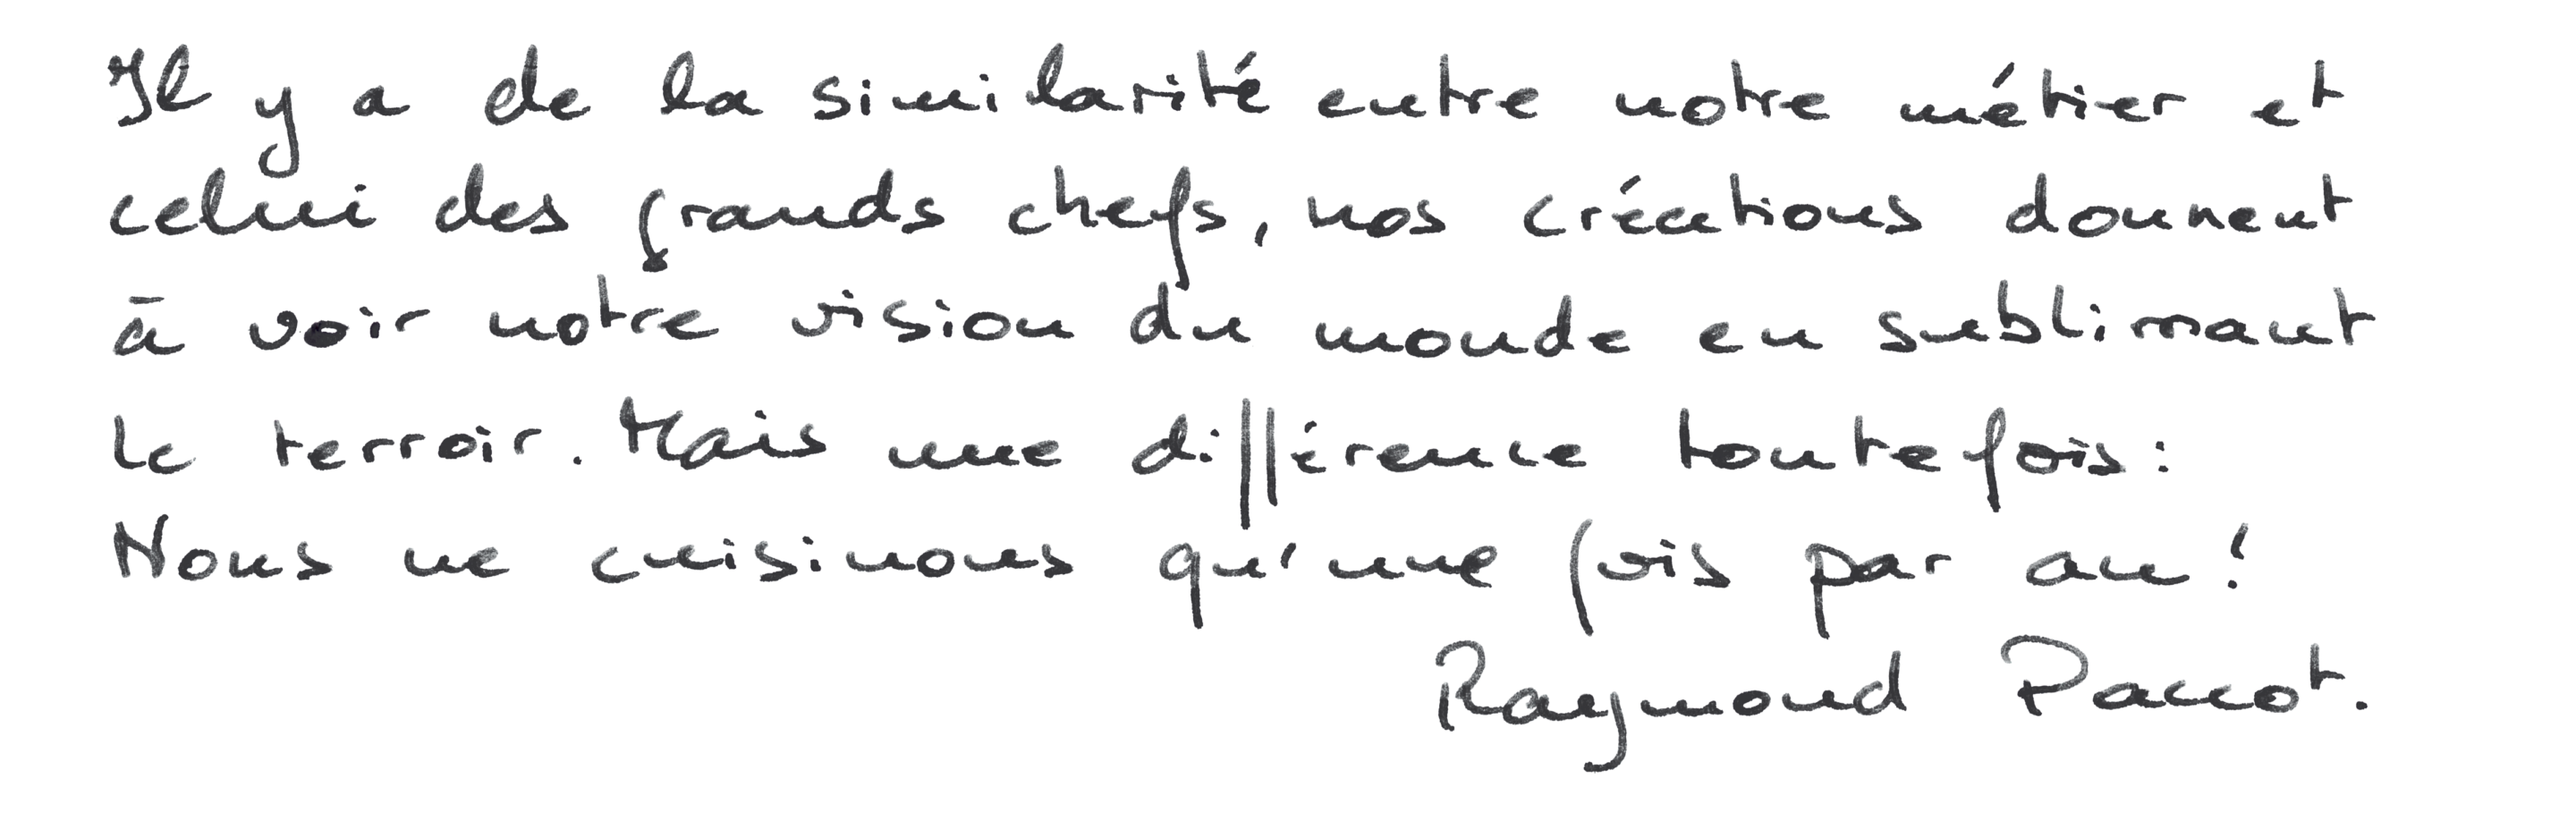 Il y a de la similarité entre notre métier et
celui des grands chefs, nos créations donnent
à voir notre vision du monde en sublimant
le terroir. Mais une différence toutefois :
Nous ne cuisinons qu'une fois par an !
Raymond Paccot.